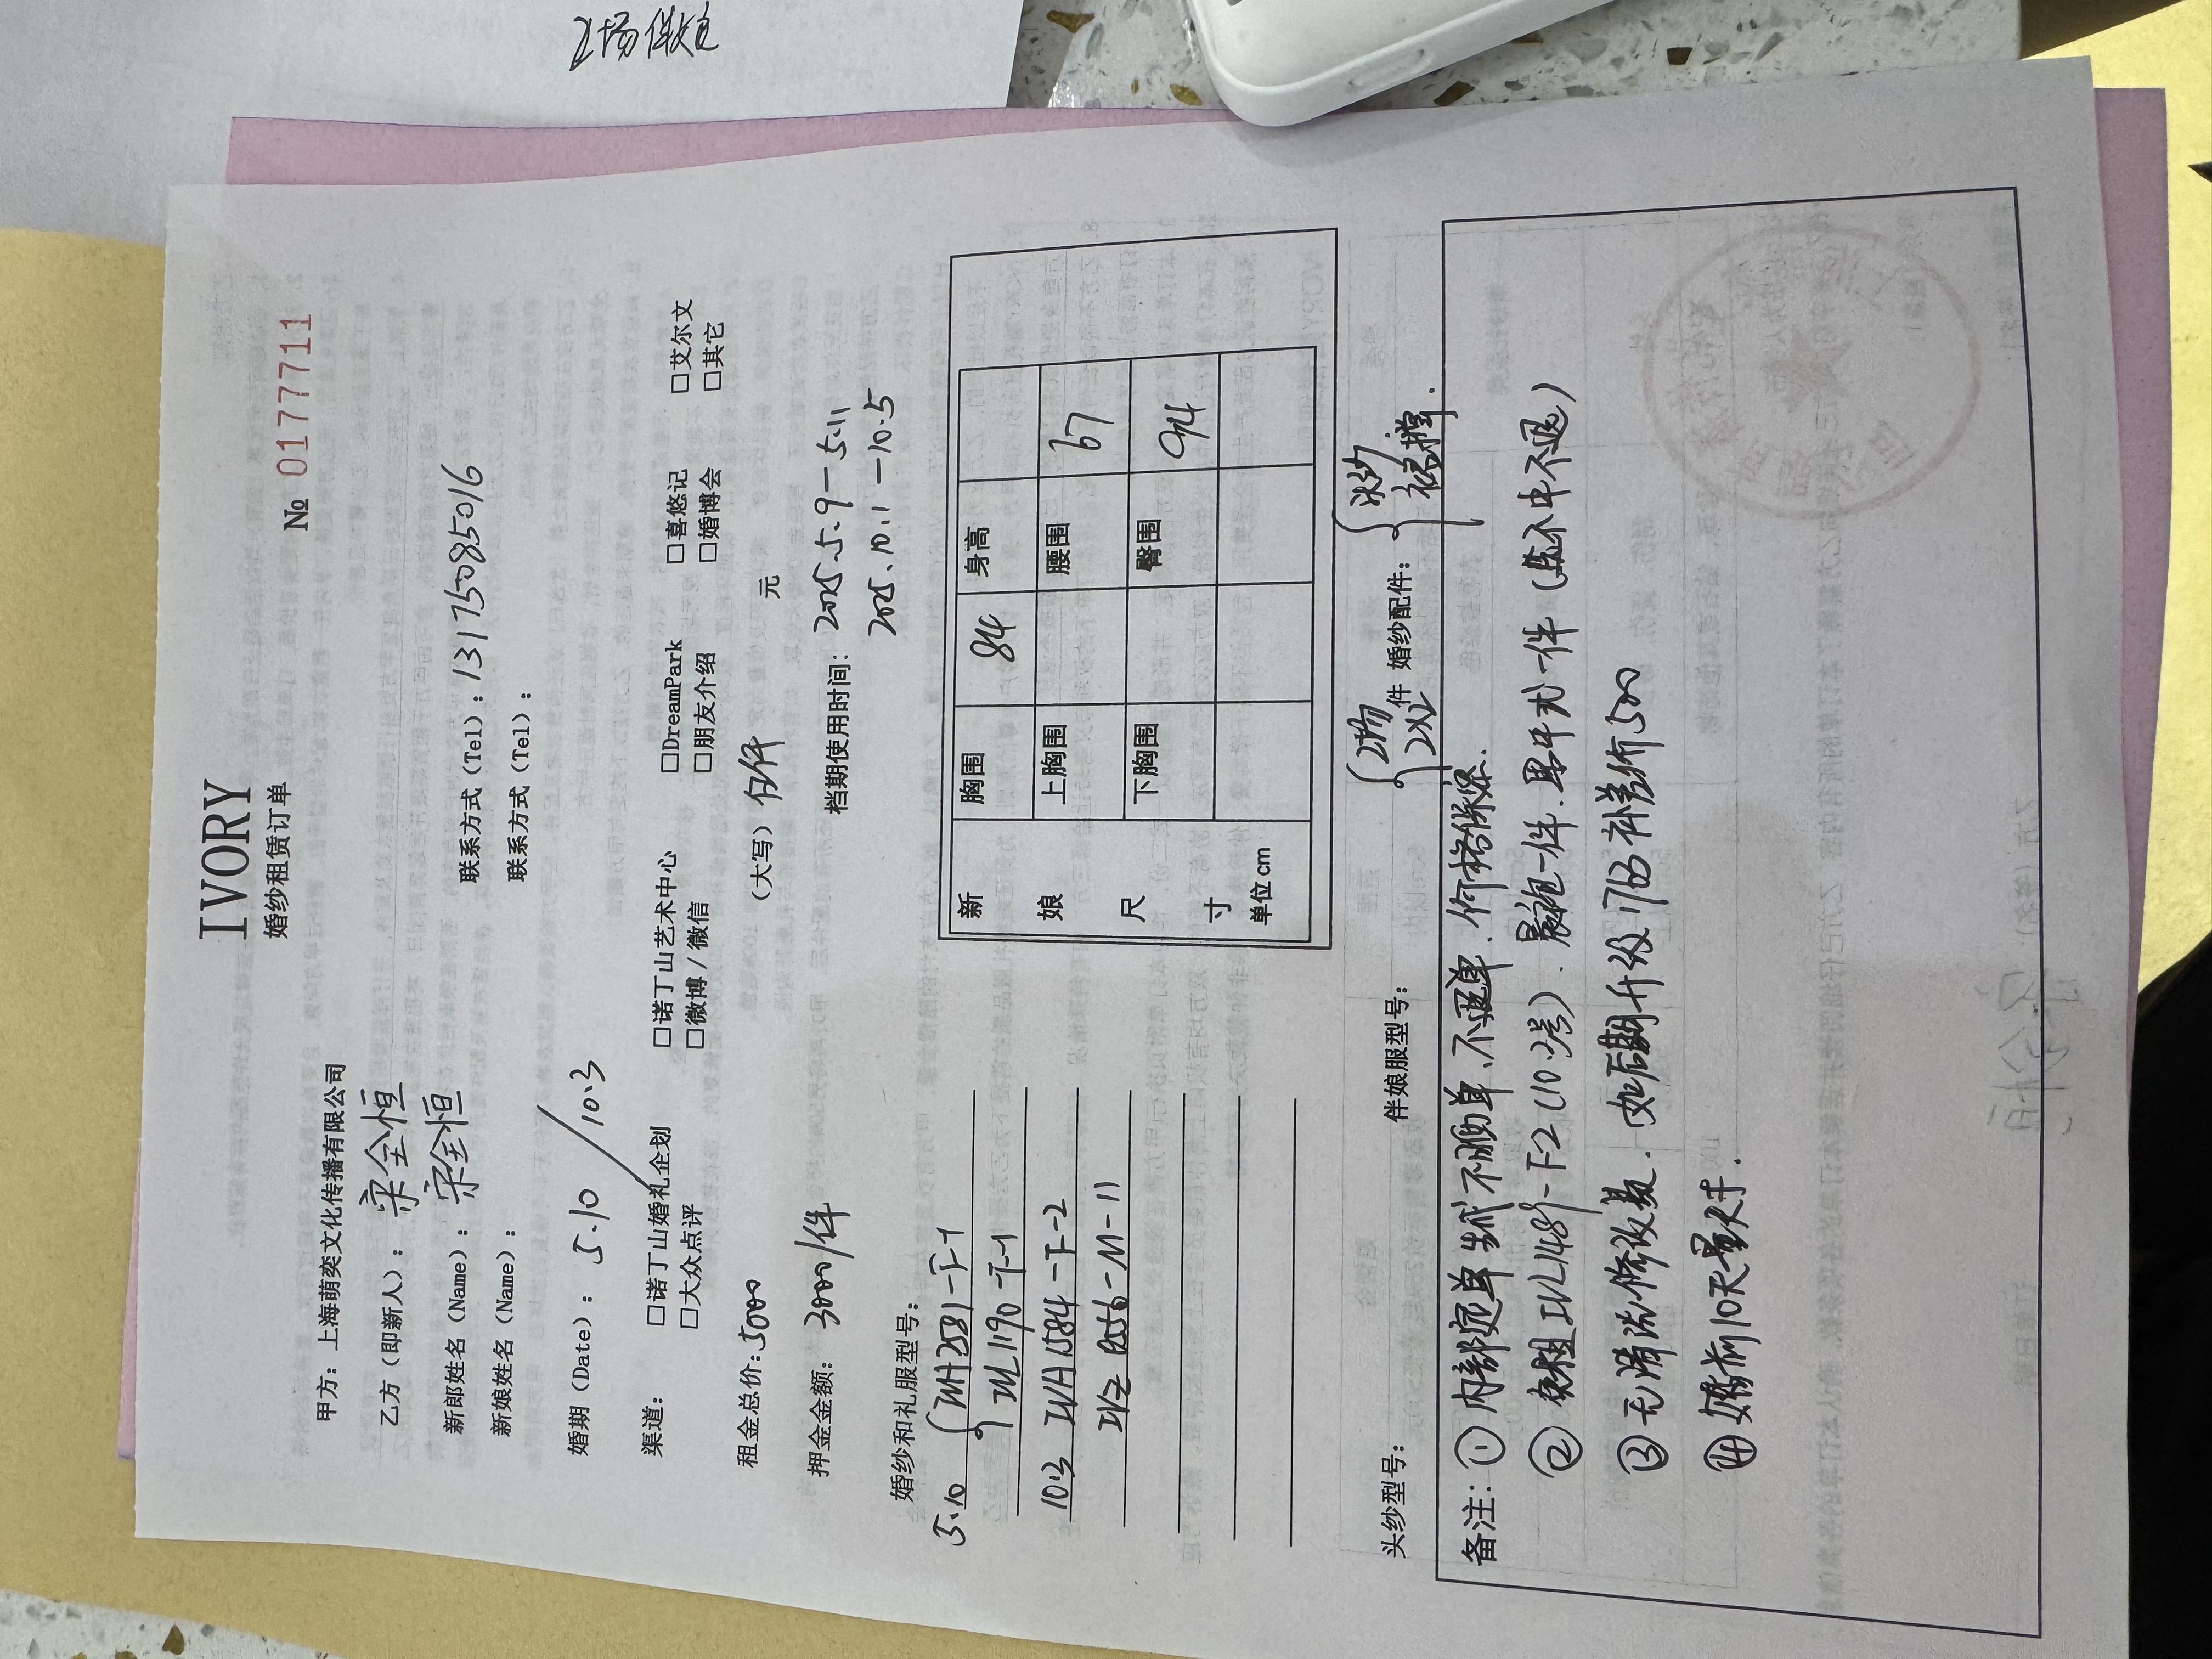 IVORY
婚纱租赁订单
№ 0177711
甲方：上海萌奕文化传播有限公司
乙方（即新人）：宋全恒
新郎姓名（Name）：宋全恒 联系方式（Tel）：13175085016
新娘姓名（Name）： 联系方式（Tel）：
婚期（Date）：5.10 / 10.3
渠道： □诺丁山婚礼企划 □诺丁山艺术中心 □DreamPark □喜悠记 □艾尔文
□大众点评 □微博/微信 □朋友介绍 □婚博会 □其它
租金总价：5000 （大写）伍仟 元
押金金额：3000/件 档期使用时间：2025.5.9－5.11
2025.10.1－10.5
婚纱和礼服型号：
5.10 IVH2581-F-1
IVL1190-F-1
10.3 IVH1584-F-2
IVZ 0556-M-11
新娘尺寸 单位cm
胸围 84 身高
上胸围 腰围 67
下胸围 臀围 94
头纱型号： 伴娘服型号： 2场 2X2 件 婚纱配件： 头纱. 裙撑.
备注：① 内部定单 不晒单、不退单．价格保密．
② 免租IVL1489-F-2（10.2号）．晨袍一件．男中式一件（选不中不退）
③ 无清洗修改费．如后期升级1763补差价500
④ 婚前10天量尺寸．
2场